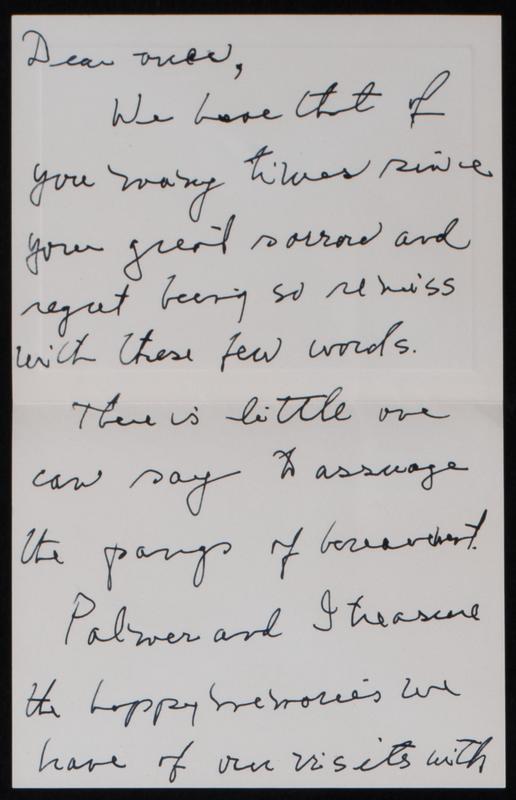 Dear ones,
We have that of
you many times since
your great sorrow and
regret being so remiss
with these few words.
There is little one
can say to assuage
the pangs of bereavement.
Palmer and I treasure
the happy memories we
have of our visits with